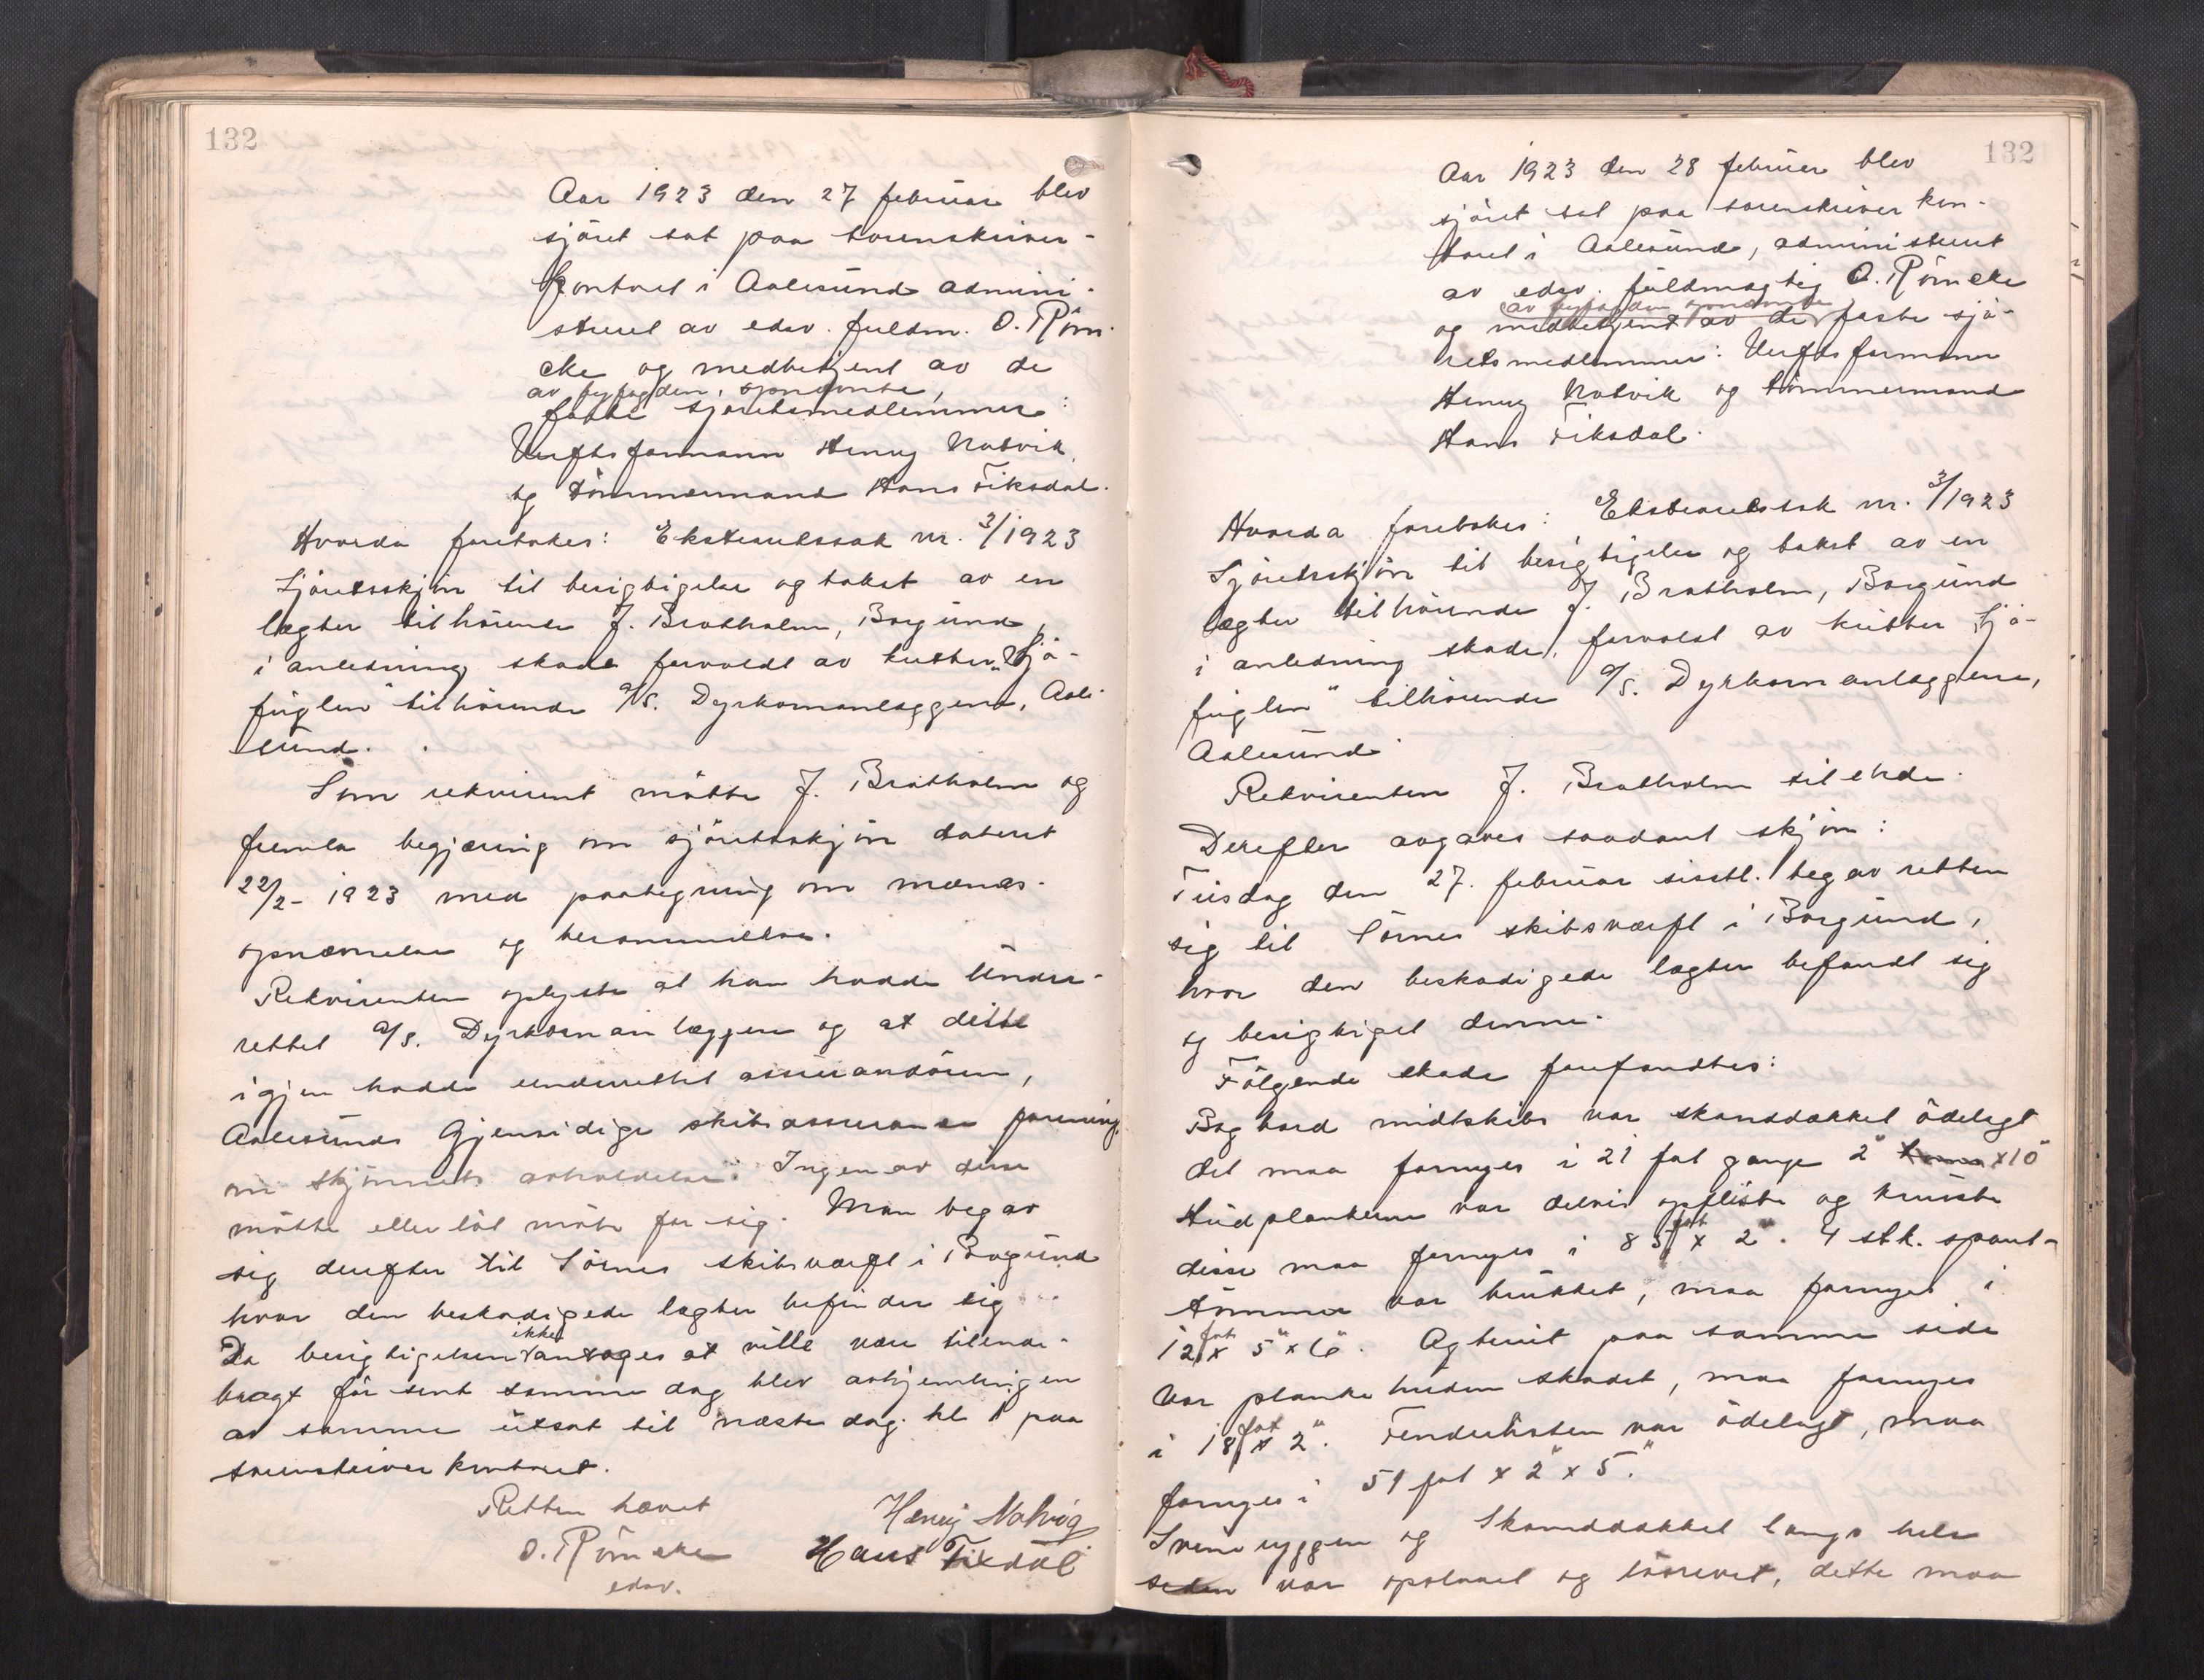 132
Aar 1923 den 27 februar blev
sjöret sat paa sorenskriver-
kontoret i Aalesund admini-
streret av edsv. fuldm. O. Röm-
cke og medbetjent av de
av byfogden opnævnte,
faste sjöretsmedlemmer:
Verftsformann Henry Natvik,
og tömmermand Hans Fiksdal.
Hvorda foretokes: Ekstraretssak nr. 3/1923
Sjöretsskjön til besigtigelse og takst av en
lægter tilhörende J. Bratholm, Borgund,
i anledning skade forvoldt av kutter "Sjö-
fuglen" tilhörende A/S. Dyrkornanlæggene, Aale-
sund.
Som rekvirent mötte J. Bratholm og
fremla begjæring om sjöretsskjön datert
22/2- 1923 med paategning om mænds-
opnævnelse og berammelse.
Rekvirenten oplyste at han hadde under-
rettet A/S. Dyrkornanlæggene og at disse
igjen hadde underrettet assurandören,
Aalesunds Gjensidige skibsassuranceforening
om skjönnets avholdelse. Ingen av disse
mötte eller löt möte for sig. Man begav
sig derefter til Sörnes skibsværft i Borgund
hvor den beskadigede lægter befinder sig
Da besigtigelsen ikke antages at ville være tilende-
bragt för sent samme dag blev avhjemlingen
av samme utsat til næste dag kl 1 paa
sorenskriverkontoret.
Retten hævet
O. Römcke
edsv.
Henrij Natvig
Hans Fixdal
132
Aar 1923 den 28 februar blev
sjöret sat paa sorenskriverkon-
toret i Aalesund, administrert
av edsv. fuldmægtig O. Römcke
av byfogden opnævnte
og medbetjent av de faste sjö-
retsmedlemmer: Verftsformann
Henry Natvik og tömmermand
Hans Fiksdal.
Hvorda foretokes: Ekstraretssak nr. 3/1923
Sjöretsskjön til besigtigelse og takst av en
lægter tilhörende J. Bratholm, Borgund
i anledning skade, forvolst av kutter "Sjö-
fuglen" tilhörende A/S. Dyrkornanlæggene,
Aalesund
Rekvirenten J. Bratholm tilstede.
Derefter avgaves saadant skjön:
Tirsdag den 27. februar sisstl. begav retten
sig til Sörnes skibsværft i Borgund,
hvor den beskadigede lægter befandt sig
og besigtiget denne.
Fölgende skade forefandtes:
Bagbord midtskibs var skansdækket ödelagt
det maa fornyes i 21 fot gange 2" x 10"
Hudplankerne var delvis opfliste og knuste
disse maa fornyes i 85 fot x 2". 4 stk. spant-
tömmer var brukket, maa fornyes i
12 fot x 5" x 6". Agterut paa samme side
var plankehuden skadet, maa fornyes
i 18 fot x 2". Fenderlisten var ödelagt, maa
fornyes i 51 fot x 2" x 5".
og Skansdækket langs hele
siden var og lösrevet, dette maa